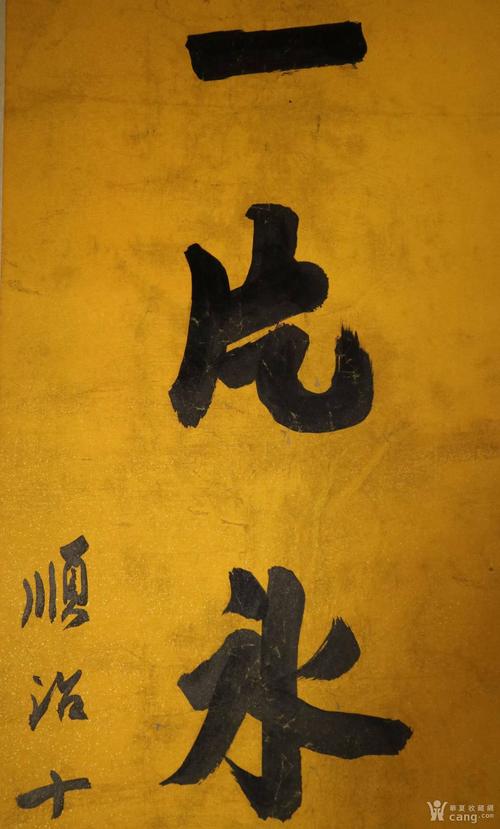 一片氷
順治十
華夏收藏網
cang.com